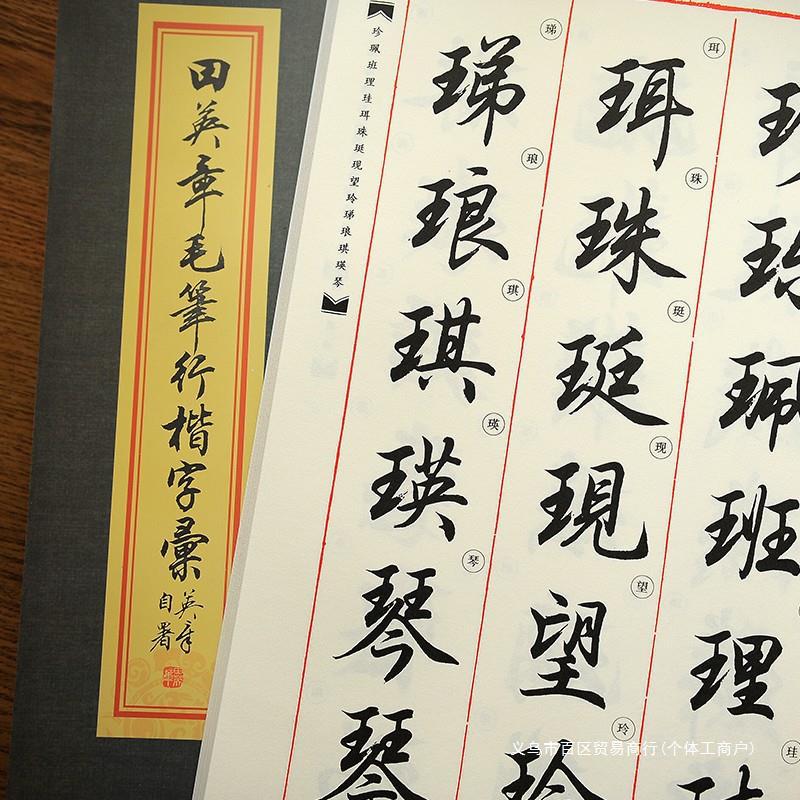 田英章毛筆行楷字彙
英章
自署
珍珮班理珪珥珠珽现望玲珶琅琪瑛琴
珮班理
珪
珥珠珽現望玲
珥珠珽现望玲
珶琅琪瑛琴琴
珶琅琪瑛琴
义乌市百区贸易商行(个体工商户)